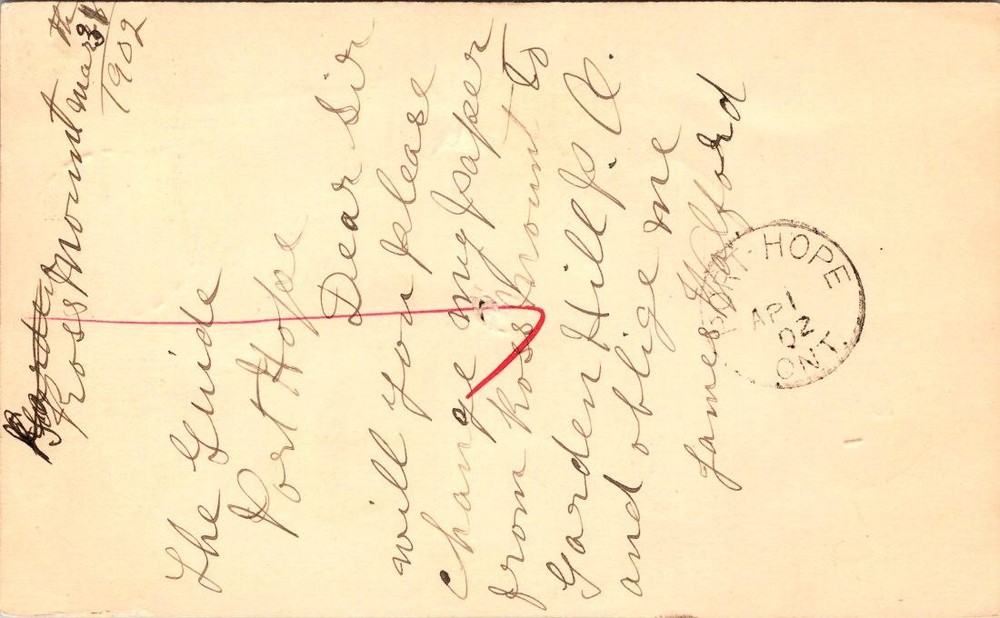 Ross Mount March 31th
1902
The Guide
Port Hope
Dear Sir
will you please
change my paper
from Rossmount to
Garden Hill P. O.
and oblige me
James Walford
PORT-HOPE
AP 1
02
ONT.